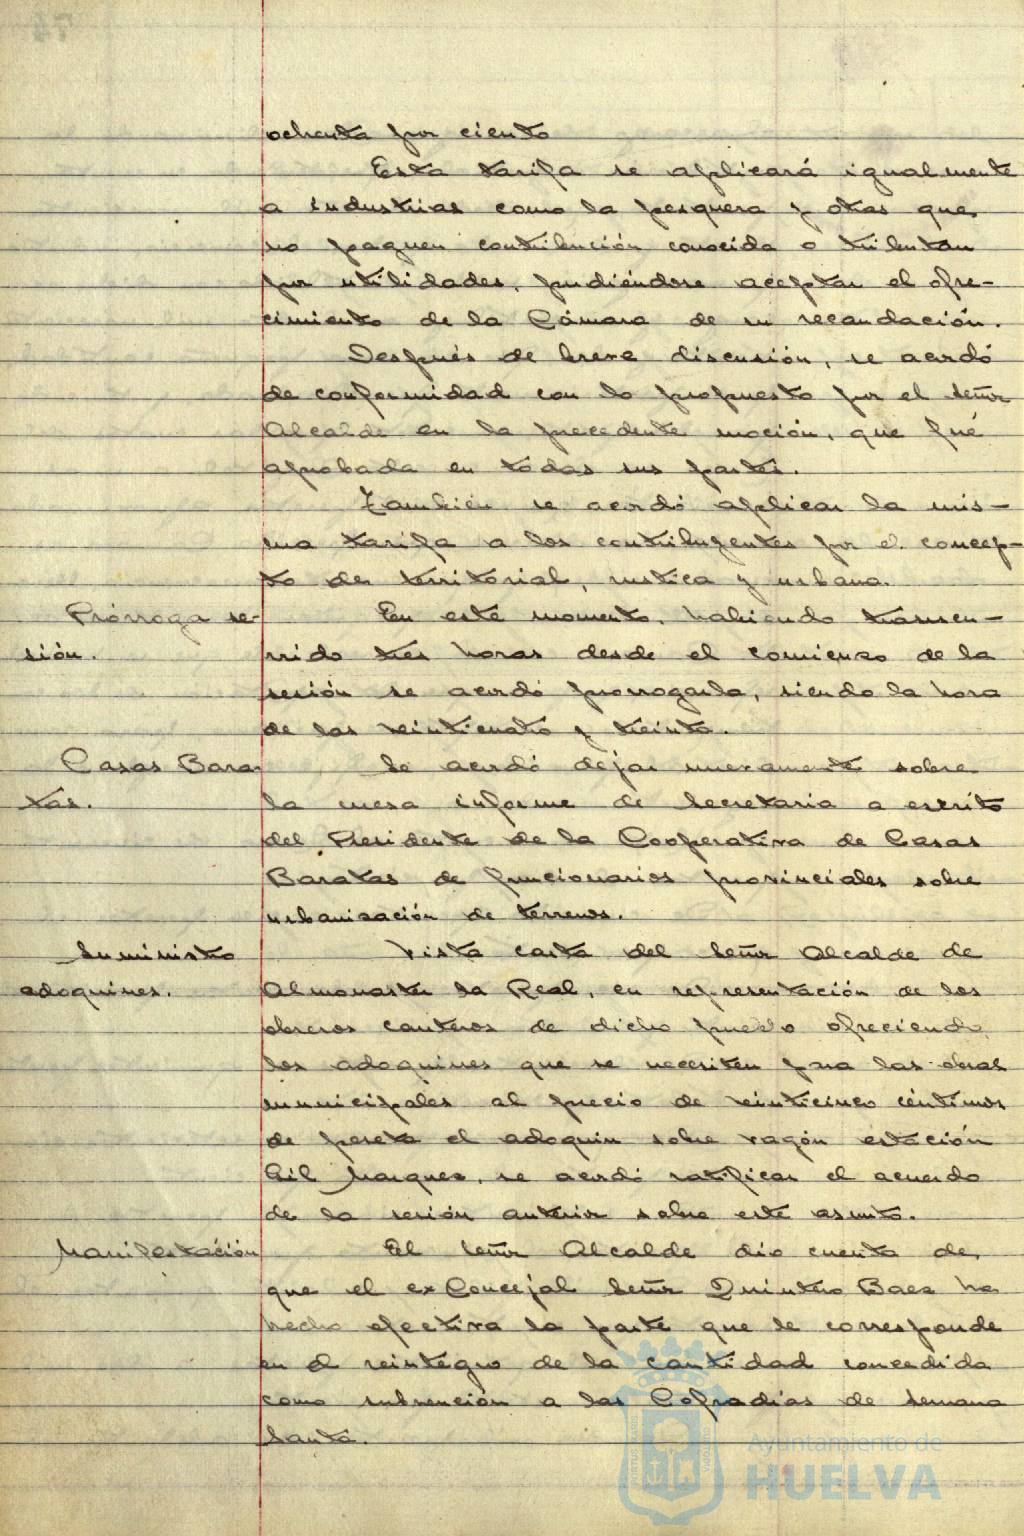 ochenta por ciento
Esta tarifa se aplicará igualmente
a industrias como la pesquera y otras que
no paguen contribución conocida o tributan
por utilidades, pudiéndose aceptar el ofre-
cimiento de la Cámara de su recaudación.
Después de breve discusión, se acordó
de conformidad con lo propuesto por el Señor
Alcalde en la precedente moción, que fué
aprobada en todas sus partes.
También se acordó aplicar la mis-
ma tarifa a los contribuyentes por el concep-
to de territorial, rustica y urbana.
Prórroga se-
sión.
En este momento, habiendo transcu-
rrido tres horas desde el comienzo de la
sesión se acordó prorrogarla, siendo la hora
de las veinticuatro y treinta.
Casas Bara-
tas.
Se acordó dejar nuevamente sobre
la mesa informe de Secretaria a escrito
del Presidente de la Cooperativa de Casas
Baratas de funcionarios provinciales sobre
urbanización de terrenos.
Suministro
adoquines.
Vista carta del Señor Alcalde de
Almonaster la Real, en representación de los
obreros canteros de dicho pueblo ofreciendo
los adoquines que se necesiten para las obras
municipales al precio de veinticinco céntimos
de peseta el adoquin sobre vagón estación
Gil Marquez, se acordó ratificar el acuerdo
de la sesión anterior sobre este asunto.
Manifestación
El Señor Alcalde dio cuenta de
que el ex Concejal Señor Quintero Baez ha
hecho efectiva la parte que le corresponde
en el reintegro de la cantidad concedida
como subvención a las Cofradias de Semana
Santa.
Ayuntamiento de
HUELVA